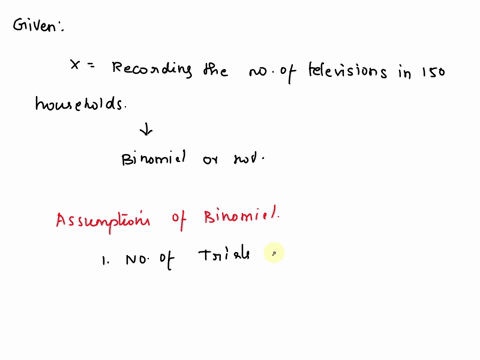 Given:
X = Recording the no. of televisions in 150
households.
↓
Binomial or not.
Assumptions of Binomial.
1. No. of Trials